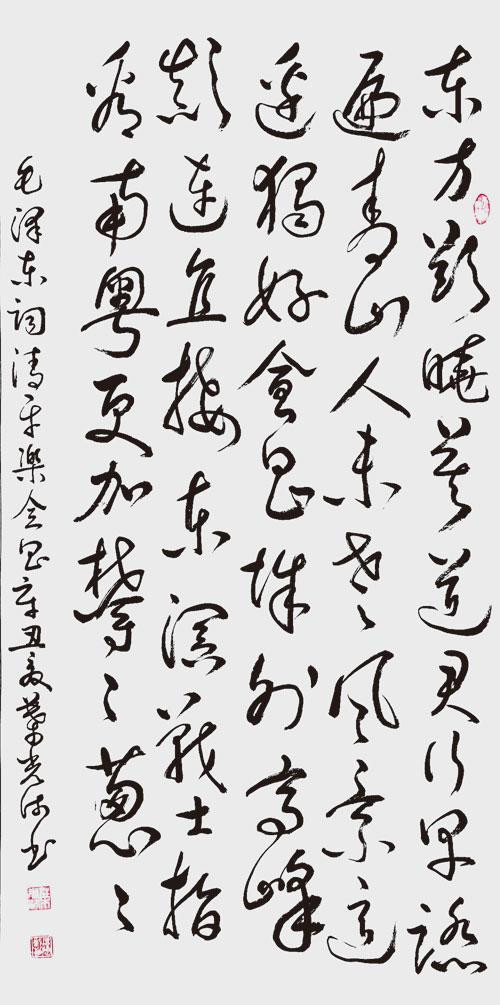 东方欲曉莫道君行早踏
遍青山人未老风景这
边獨好會昌城外高峰
颠连直接东溟戰士指
看南粵更加欝々蔥々
毛泽东词清平樂会昌辛丑夏光书